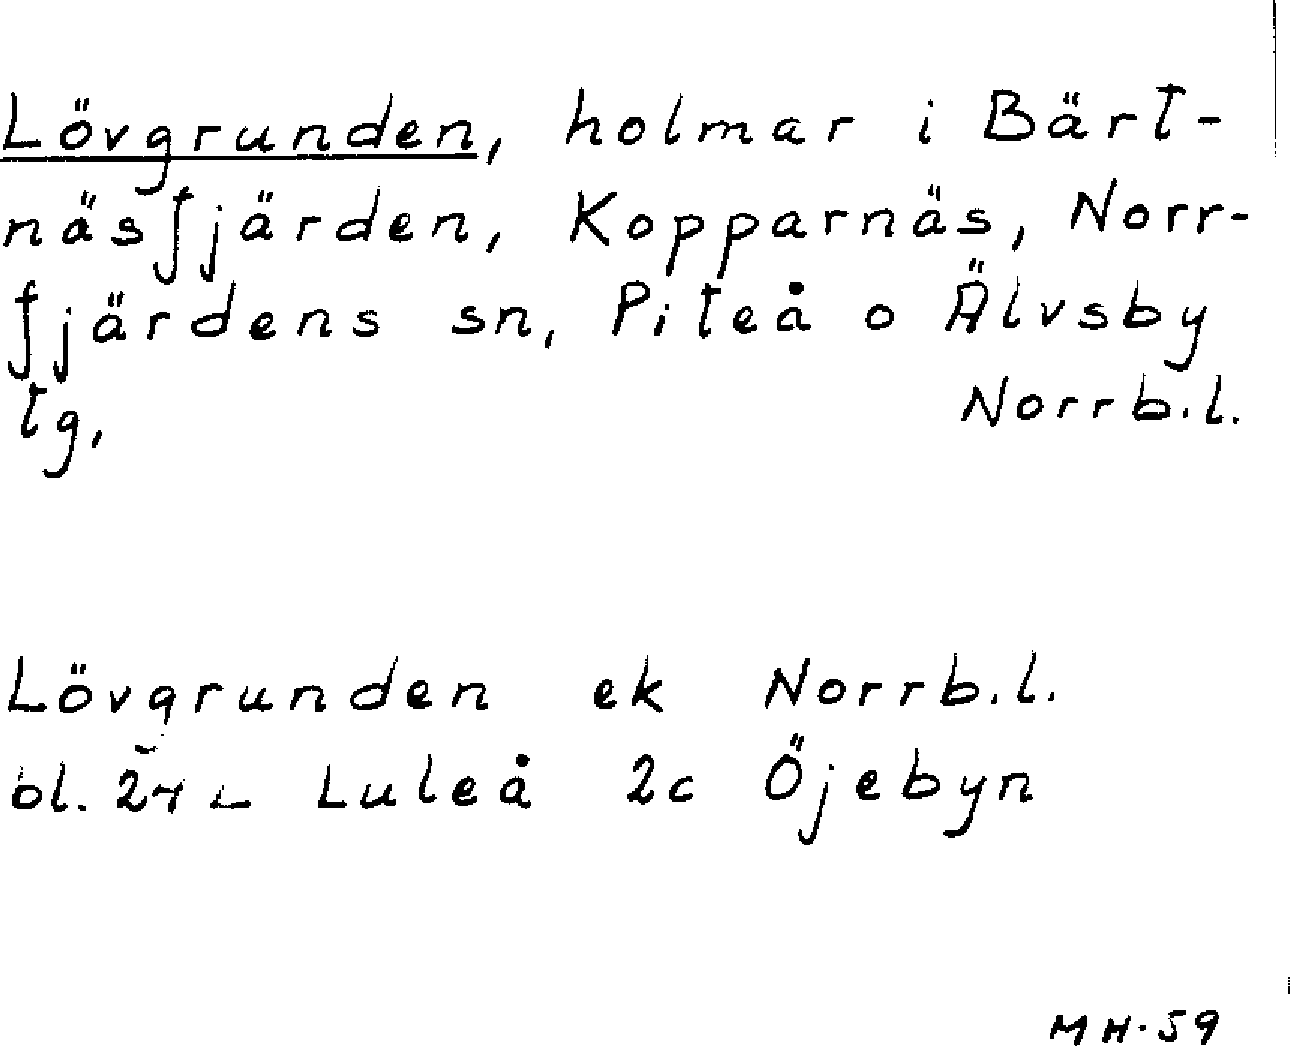 Lövgrunden, holmar i Bärt-
näsfjärden, Kopparnäs, Norr-
fjärdens sn, Piteå o Älvsby
tg, Norrb.l.
Lövgrunden ek Norrb.l.
bl. 24 L Luleå 2c Öjebyn
MH-59